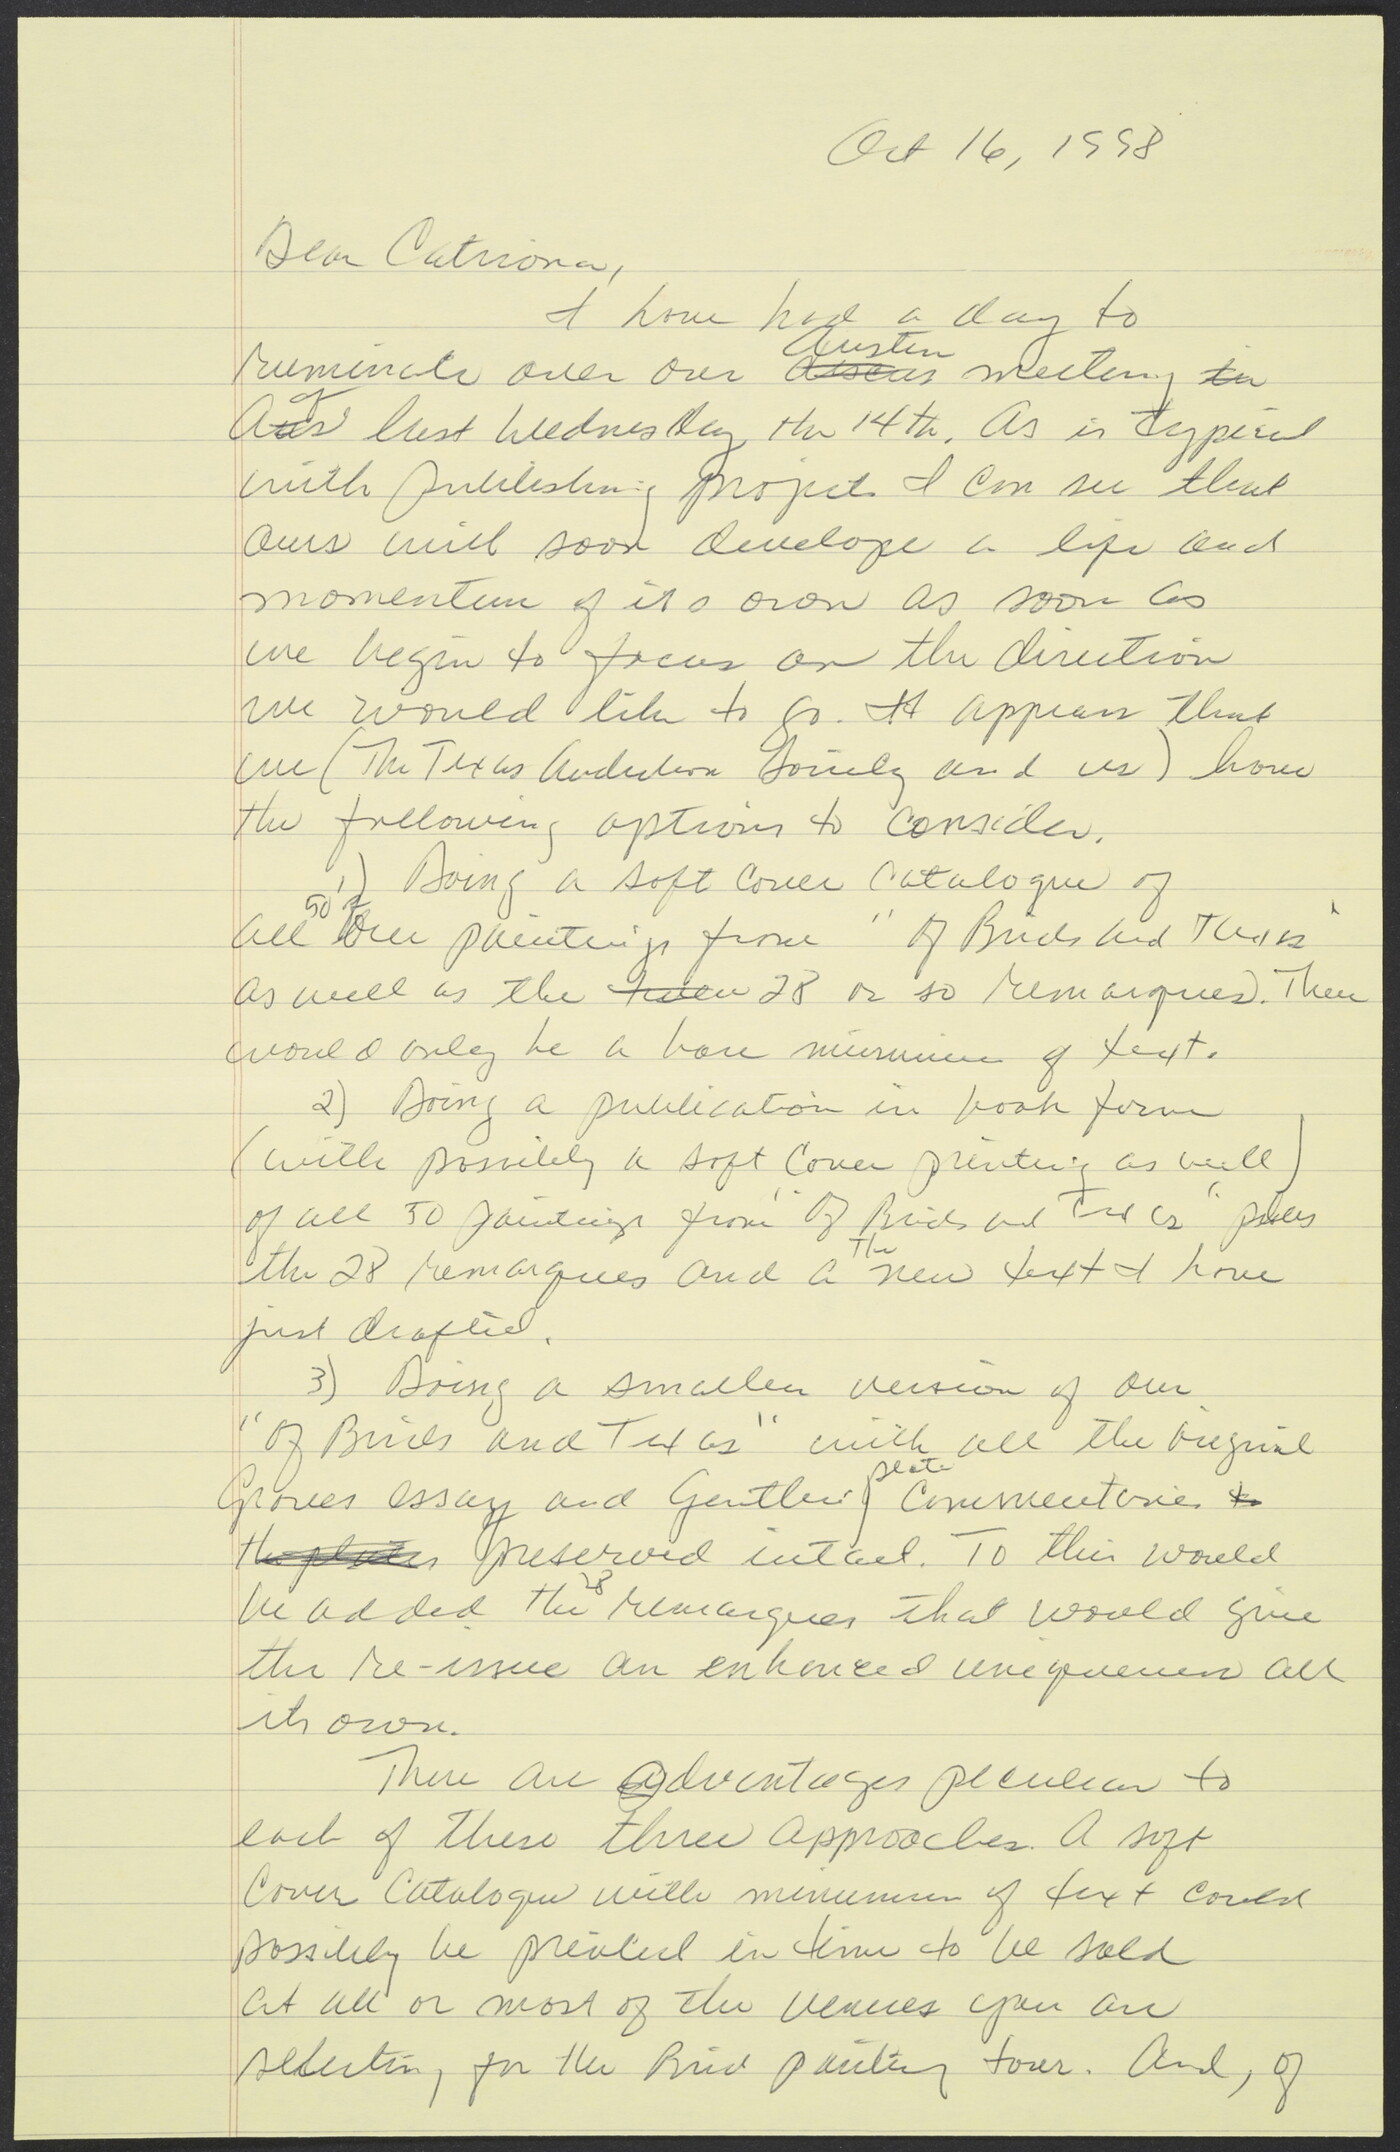 Oct 16, 1998
Dear Catriona,
I have had a day to
ruminate over our Austin meeting in
of last Wednesday, the 14th. As is typical
with publishing projects I can see that
ours will soon develope a life and
momentum of its own as soon as
we begin to focus on the direction
we would like to go. It appears that
we (The Texas Audubon Society and us) have
the following options to consider.
1) Doing a soft cover catalogue of
all 50 of our paintings from "Of Birds and Texas"
as well as the 28 or so remarques. There
would only be a bare minimum of text.
2) Doing a publication in book form
(with possibly a soft cover printing as well)
of all 50 paintings from "Of Birds and Texas" plus
the 28 remarques and a The new text I have
just drafted.
3) Doing a smaller version of our
"Of Birds and Texas" with all the original
Graves essay and Gentling plate commentaries to
the plates preserved intact. To this would
be added the 28 remarques that would give
the re-issue an enhanced uniqueness all
its own.
There are advantages peculiar to
each of these three approaches. A soft
cover catalogue with minimum of text could
possibly be printed in time to be sold
at all or most of the venues you are
selecting for the Bird painting tour. And, of